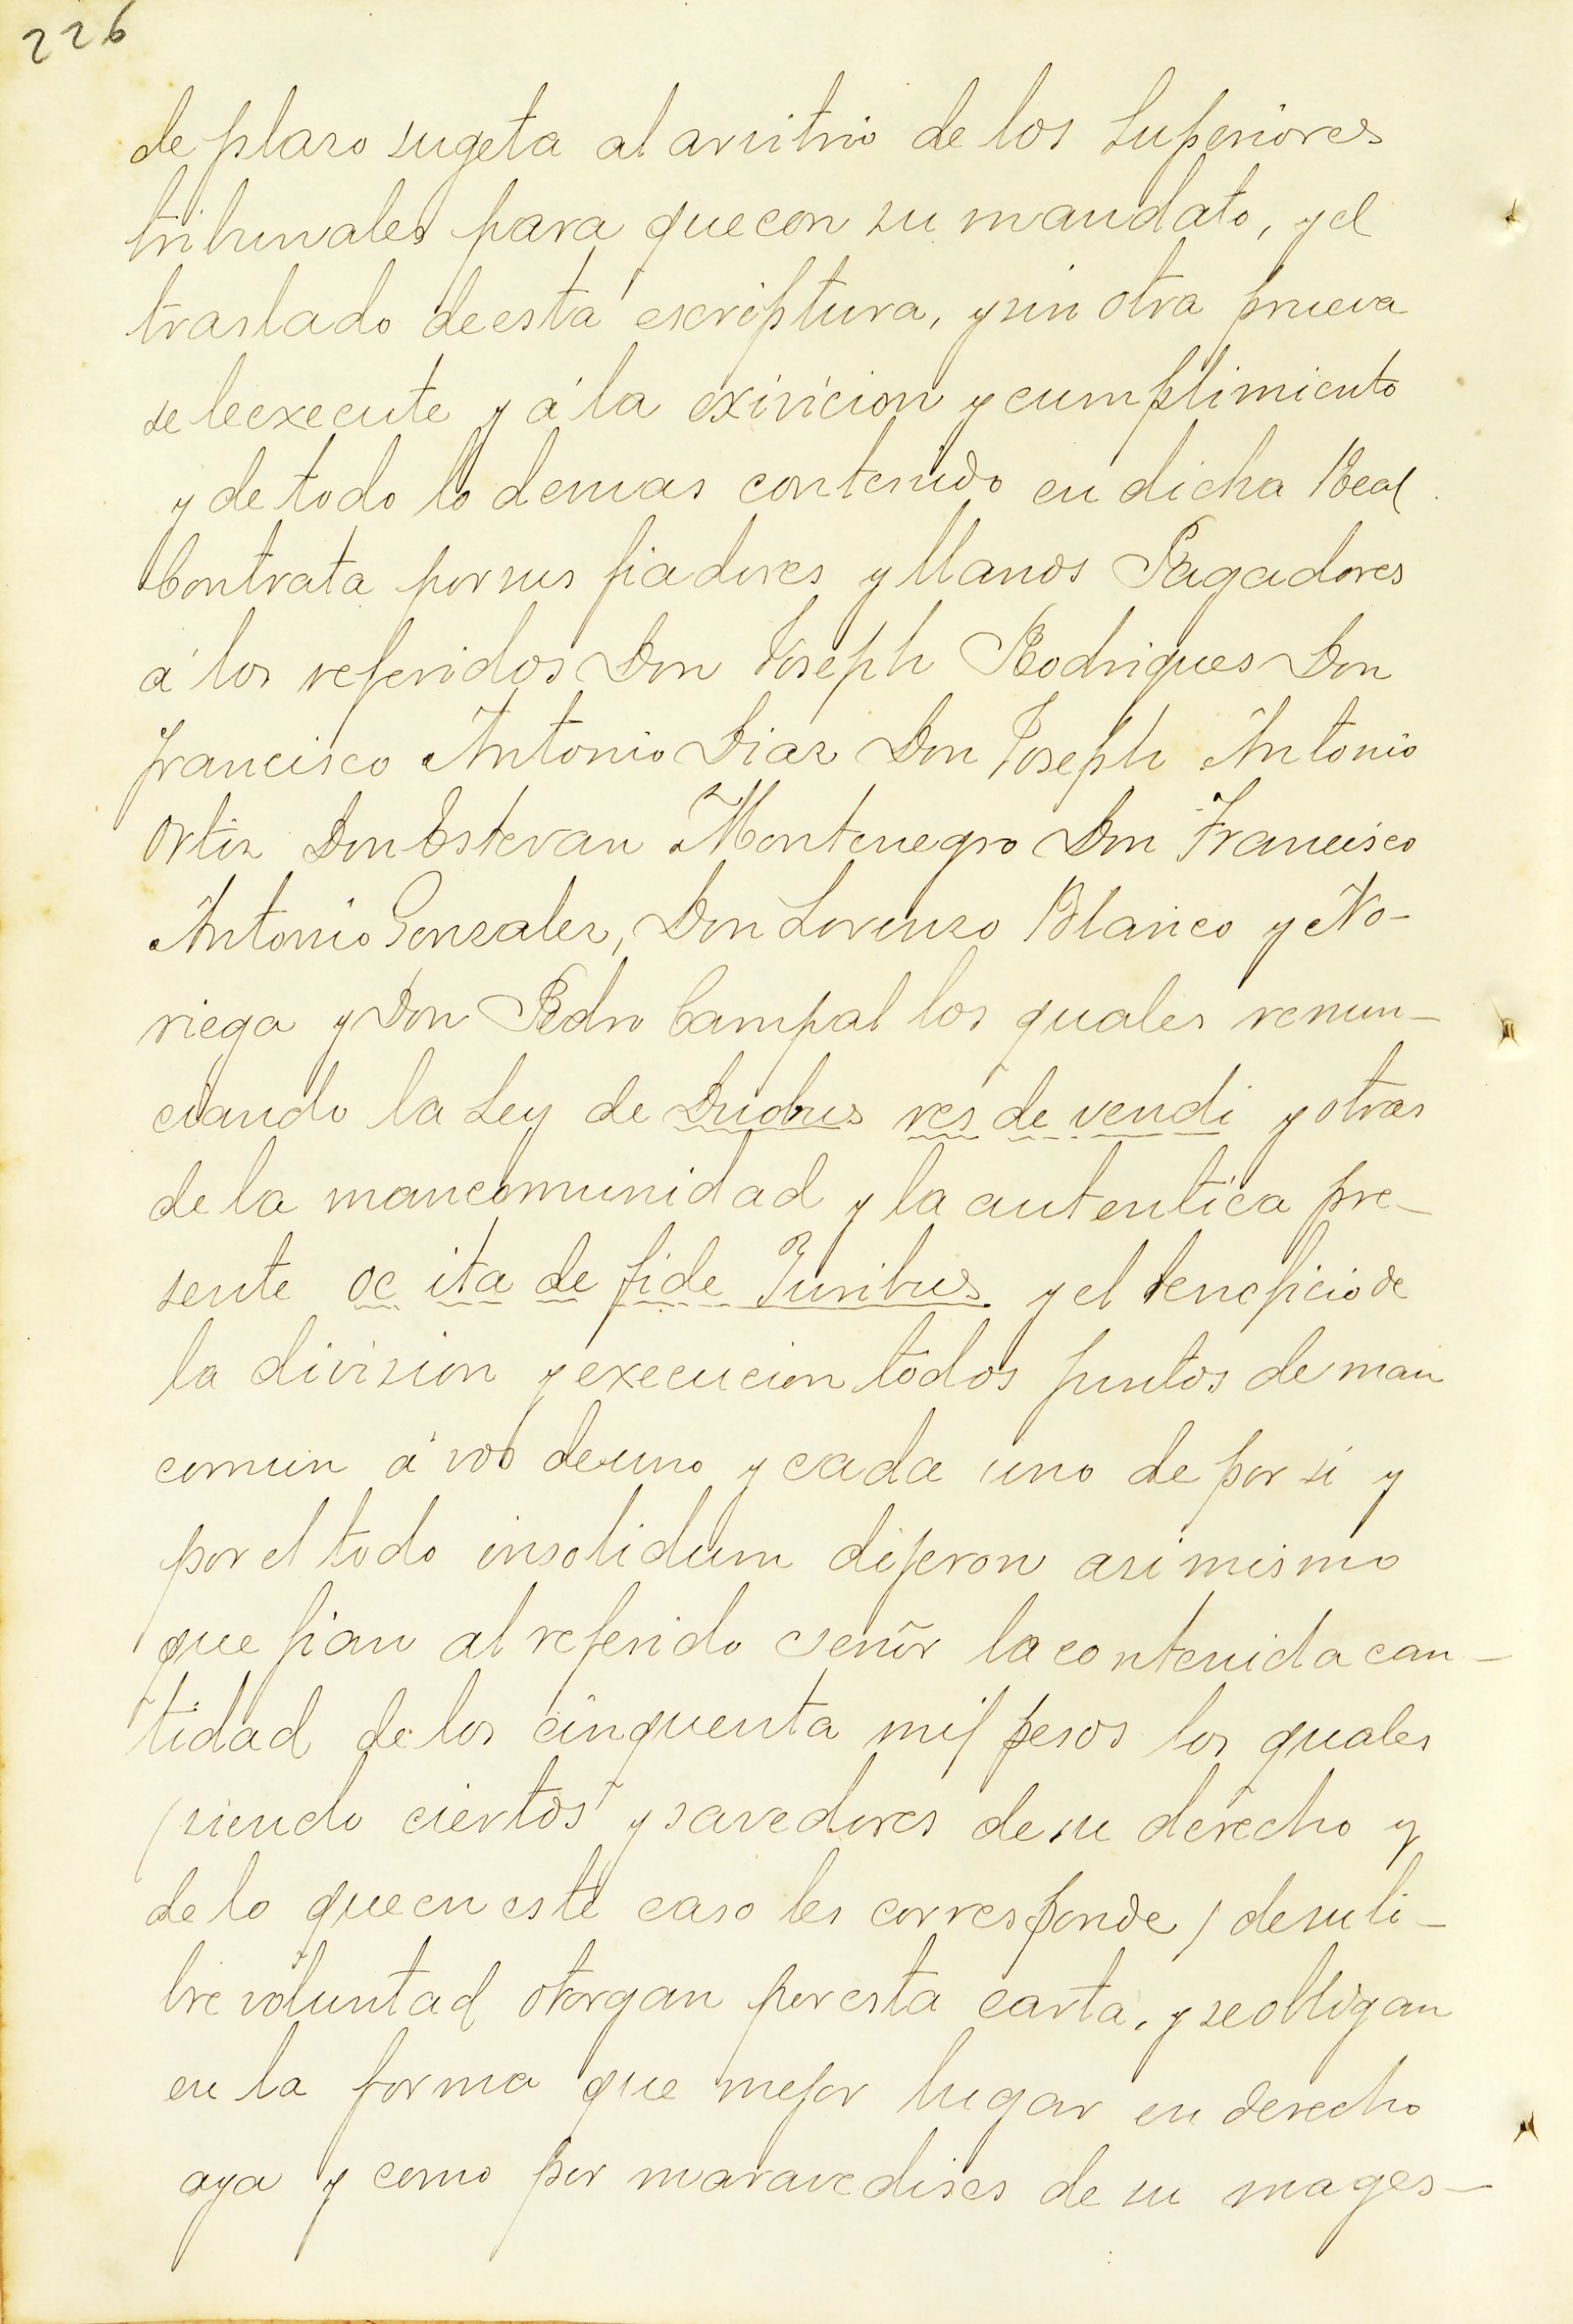 226
de plazo sugeta al arvitrio de los Superiores
tribunales para que con su mandato, y el
traslado de esta escriptura, y sin otra prueva
se le execute y á la exivicion y cumplimiento
y de todo lo demas contenido en dicha Real
Contrata por sus fiadores y llanos Pagadores
á los referidos Don Joseph Rodrigues Don
Francisco Antonio Diaz Don Joseph Antonio
Ortiz Don Estevan Montenegro Don Francisco
Antonio Gonzalez, Don Lorenzo Blanco y No-
riega y Don Pedro Campal los quales renun-
ciando la Ley de Duobus res de vendi y otras
de la mancomunidad y la autentica pre-
sente oc ita de fide Juribus y el beneficio de
la division y execucion todos juntos de man
comun á voz de uno y cada uno de por si y
por el todo insolidum dijeron asi mismo
que fian al referido señor la contenida can-
tidad de los cinquenta mil pesos los quales
(siendo ciertos y savedores de su derecho y
de lo que en este caso les corresponde) de su li-
bre voluntad otorgan por esta carta, y se obligan
en la forma que mejor lugar en derecho
aya y como por maravedises de su mages-